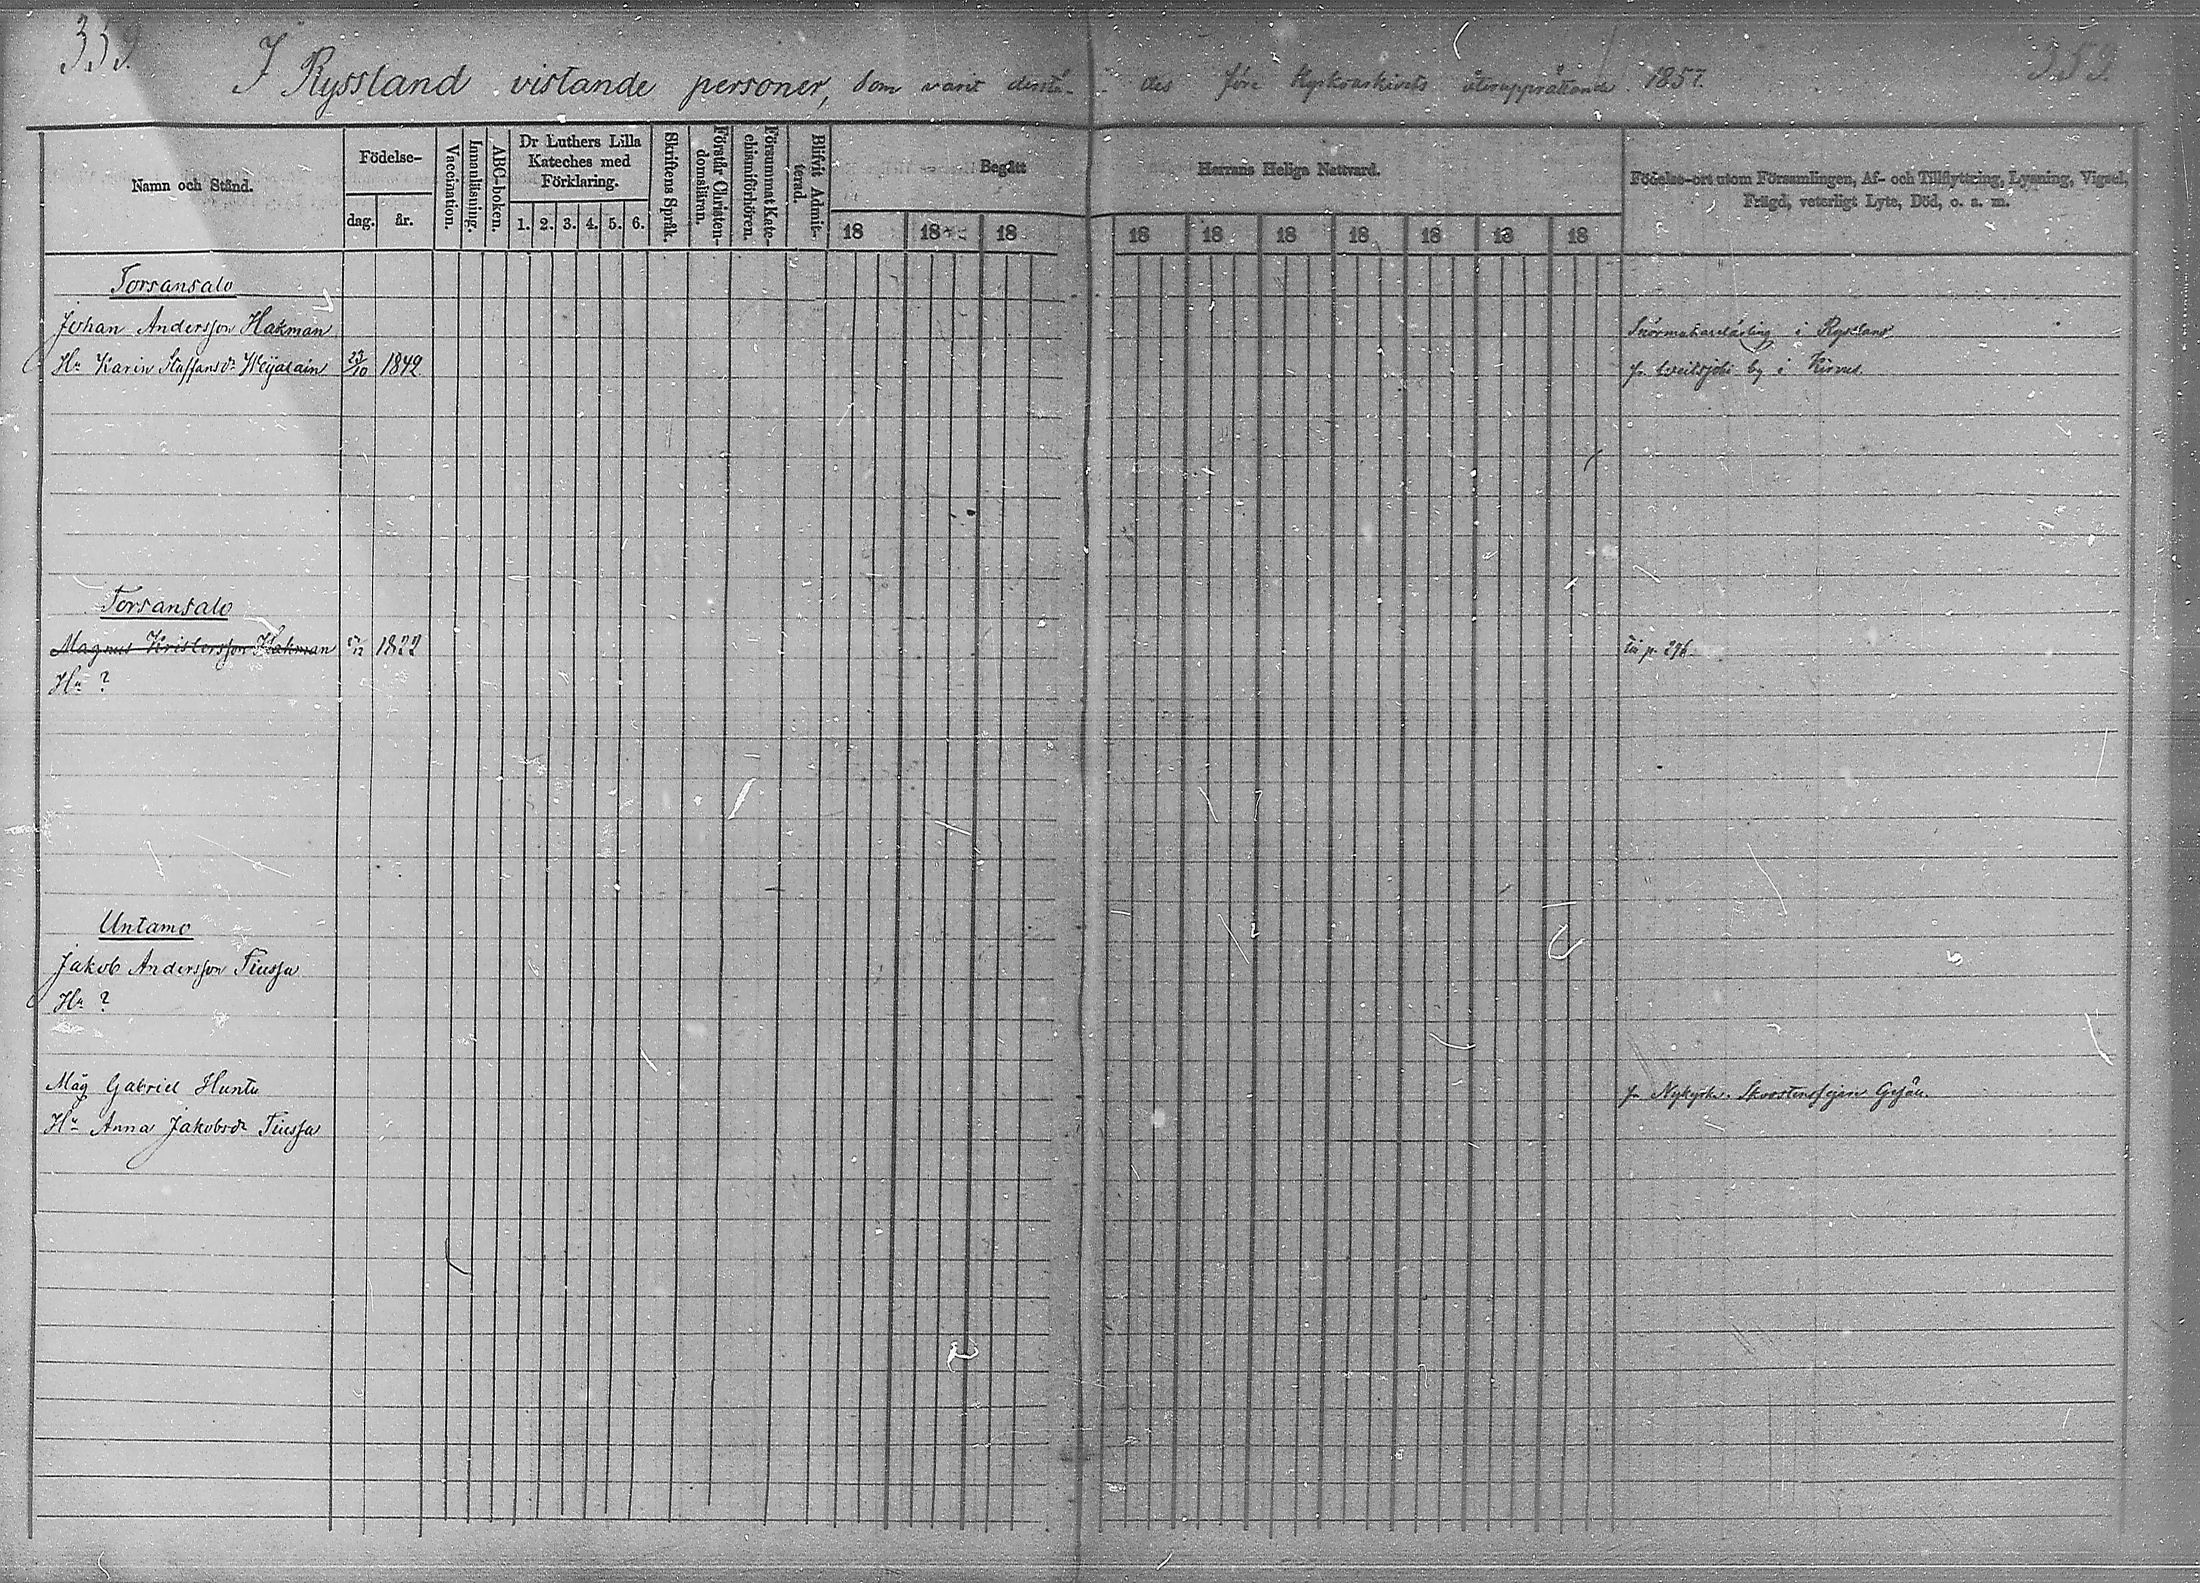 359. 359.
I Ryssland vistande personer, som varit derstä- des före Kyrkoarkivets återupprättande 1857.
Namn och Stånd.
Födelse-
dag. år.
Vaccination.
Innanläsning.
ABC-boken.
Dr Luthers Lilla
Kateches med
Förklaring.
1. 2. 3. 4. 5. 6.
Skriftens Språk.
Förstår Christen-
domsläran.
Försummat Kate-
chismiförhören.
Blifvit Admit-
terad.
Begått Herrans Heliga Nattvard.
18 18 18 18 18 18 18 18 18 18
Födelse-ort utom Församlingen, Af- och Tillflyttning, Lysning, Vigsel,
Frägd, veterligt Lyte, Död, o. a. m.
Torsansalo
Johan Andersson Hakman i Ryssland
Hu Karin Staffansdr Weijalain 23/10 1842 fr by i Kirvus.
Torsansalo
Magnus Kristersson Hakman /12 1822 Til p. 296
Hu ?
Untamo
Jakob Andersson Tiussa
Hu ?
Måg Gabriel Huntu fr Nykyrka. Skorstensfejare Gesäll.
Hu Anna Jakobsdr Tiussa